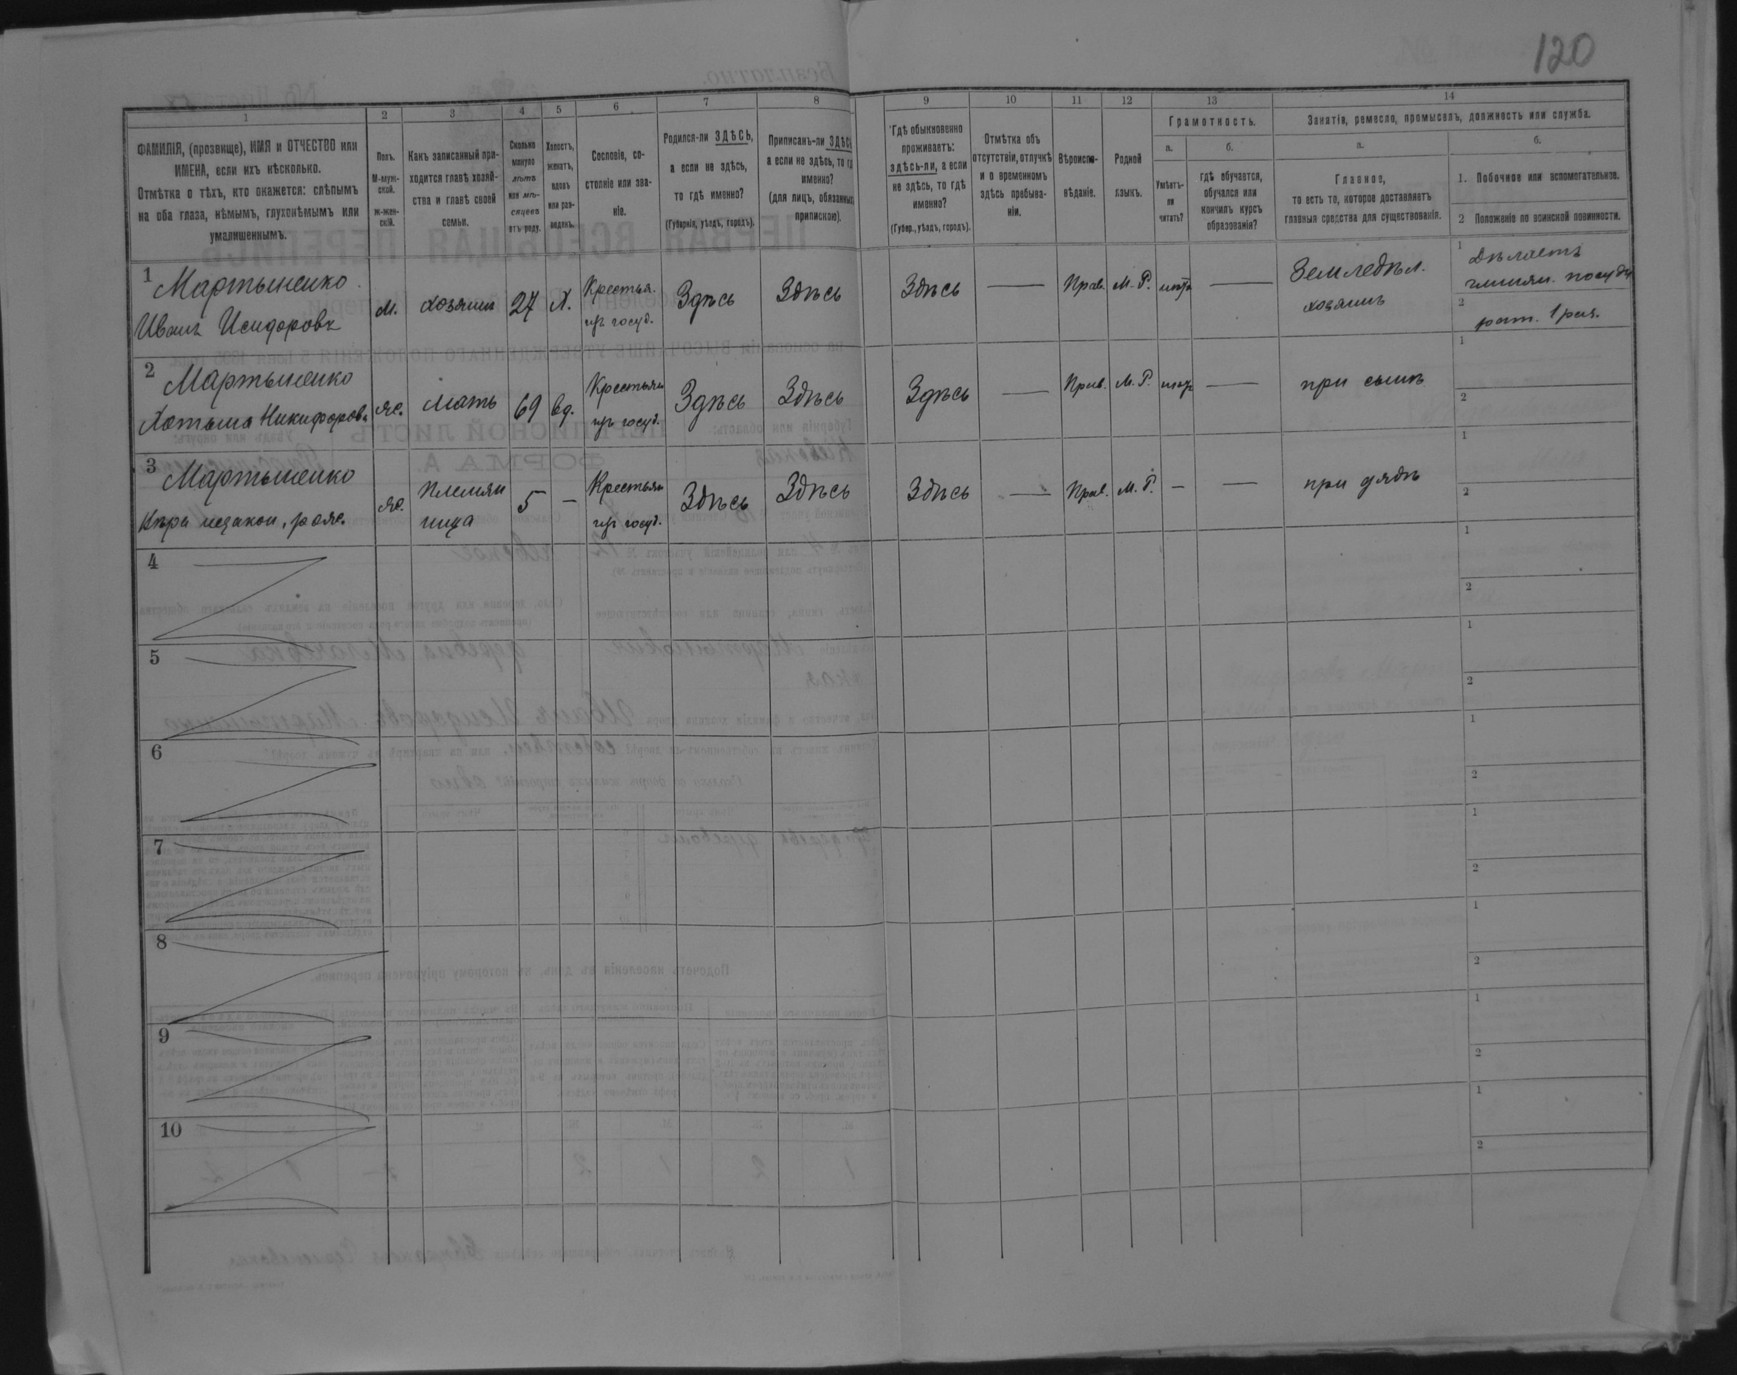 120
1
2
3
4
5
6
7
8
9
10
11
12
13
14
ФАМИЛІЯ, (прозвище), ИМЯ и ОТЧЕСТВО или
ИМЕНА, если ихъ нѣсколько.
Отмѣтка о тѣхъ, кто окажется: слѣпымъ
на оба глаза, нѣмымъ, глухонѣмымъ или
умалишеннымъ.
Полъ.
М-муж-
ской.
Ж-жен-
скій.
Какъ записанный при-
ходится главѣ хозяй-
ства и главѣ своей
семьи.
Сколько
минуло
лѣтъ
или мѣ-
сяцевъ
отъ роду.
Холостъ,
женатъ,
вдовъ
или раз-
веденъ.
Сословіе, со-
стояніе или зва-
ніе.
Родился-ли ЗДѢСЬ,
а если не здѣсь,
то гдѣ именно?
(Губернія, уѣздъ, городъ).
Приписанъ-ли ЗДѢСЬ
а если не здѣсь, то гдѣ
именно?
(для лицъ, обязанныхъ
припискою).
Гдѣ обыкновенно
проживаетъ:
здѣсь-ли, а если
не здѣсь, то гдѣ
именно?
(Губер., уѣздъ, городъ).
Отмѣтка объ
отсутствіи, отлучкѣ
и о временномъ
здѣсь пребыва-
ніи.
Вѣроиспо-
вѣданіе.
Родной
языкъ.
Грамотность.
а.
Умѣетъ-
ли
читать?
б.
гдѣ обучается,
обучался или
кончилъ курсъ
образованія?
Занятіе, ремесло, промыселъ, должность или служба.
а.
Главное,
то есть то, которое доставляетъ
главныя средства для существованія.
б.
1. Побочное или вспомогательное.
2 Положеніе по воинской повинности.
1 Мартыненко
Иванъ Исидоровъ
м. хозяинъ 27 Х.
Крестья.
изъ госуд.
Здѣсь Здѣсь Здѣсь — Прав. М. Р. нѣтъ —
Земледѣл.
хозяинъ
1 Дѣлаетъ
глинян. посуду
2 рат. 1 раз.
2 Мартыненко
Никифоров.
же. мать 69 вд.
Крестьян
изъ госуд.
Здѣсь Здѣсь Здѣсь — Прав. М. Р. нѣтъ — при сынѣ
1
2
3 Мартыненко
незакон. рож.
же.
Племян
ница
5 —
Крестьян
изъ госуд.
Здѣсь Здѣсь Здѣсь — Прав. М. Р. — — при дядѣ
1
2
4
1
2
5
1
2
6
1
2
7
1
2
8
1
2
9
1
2
10
1
2